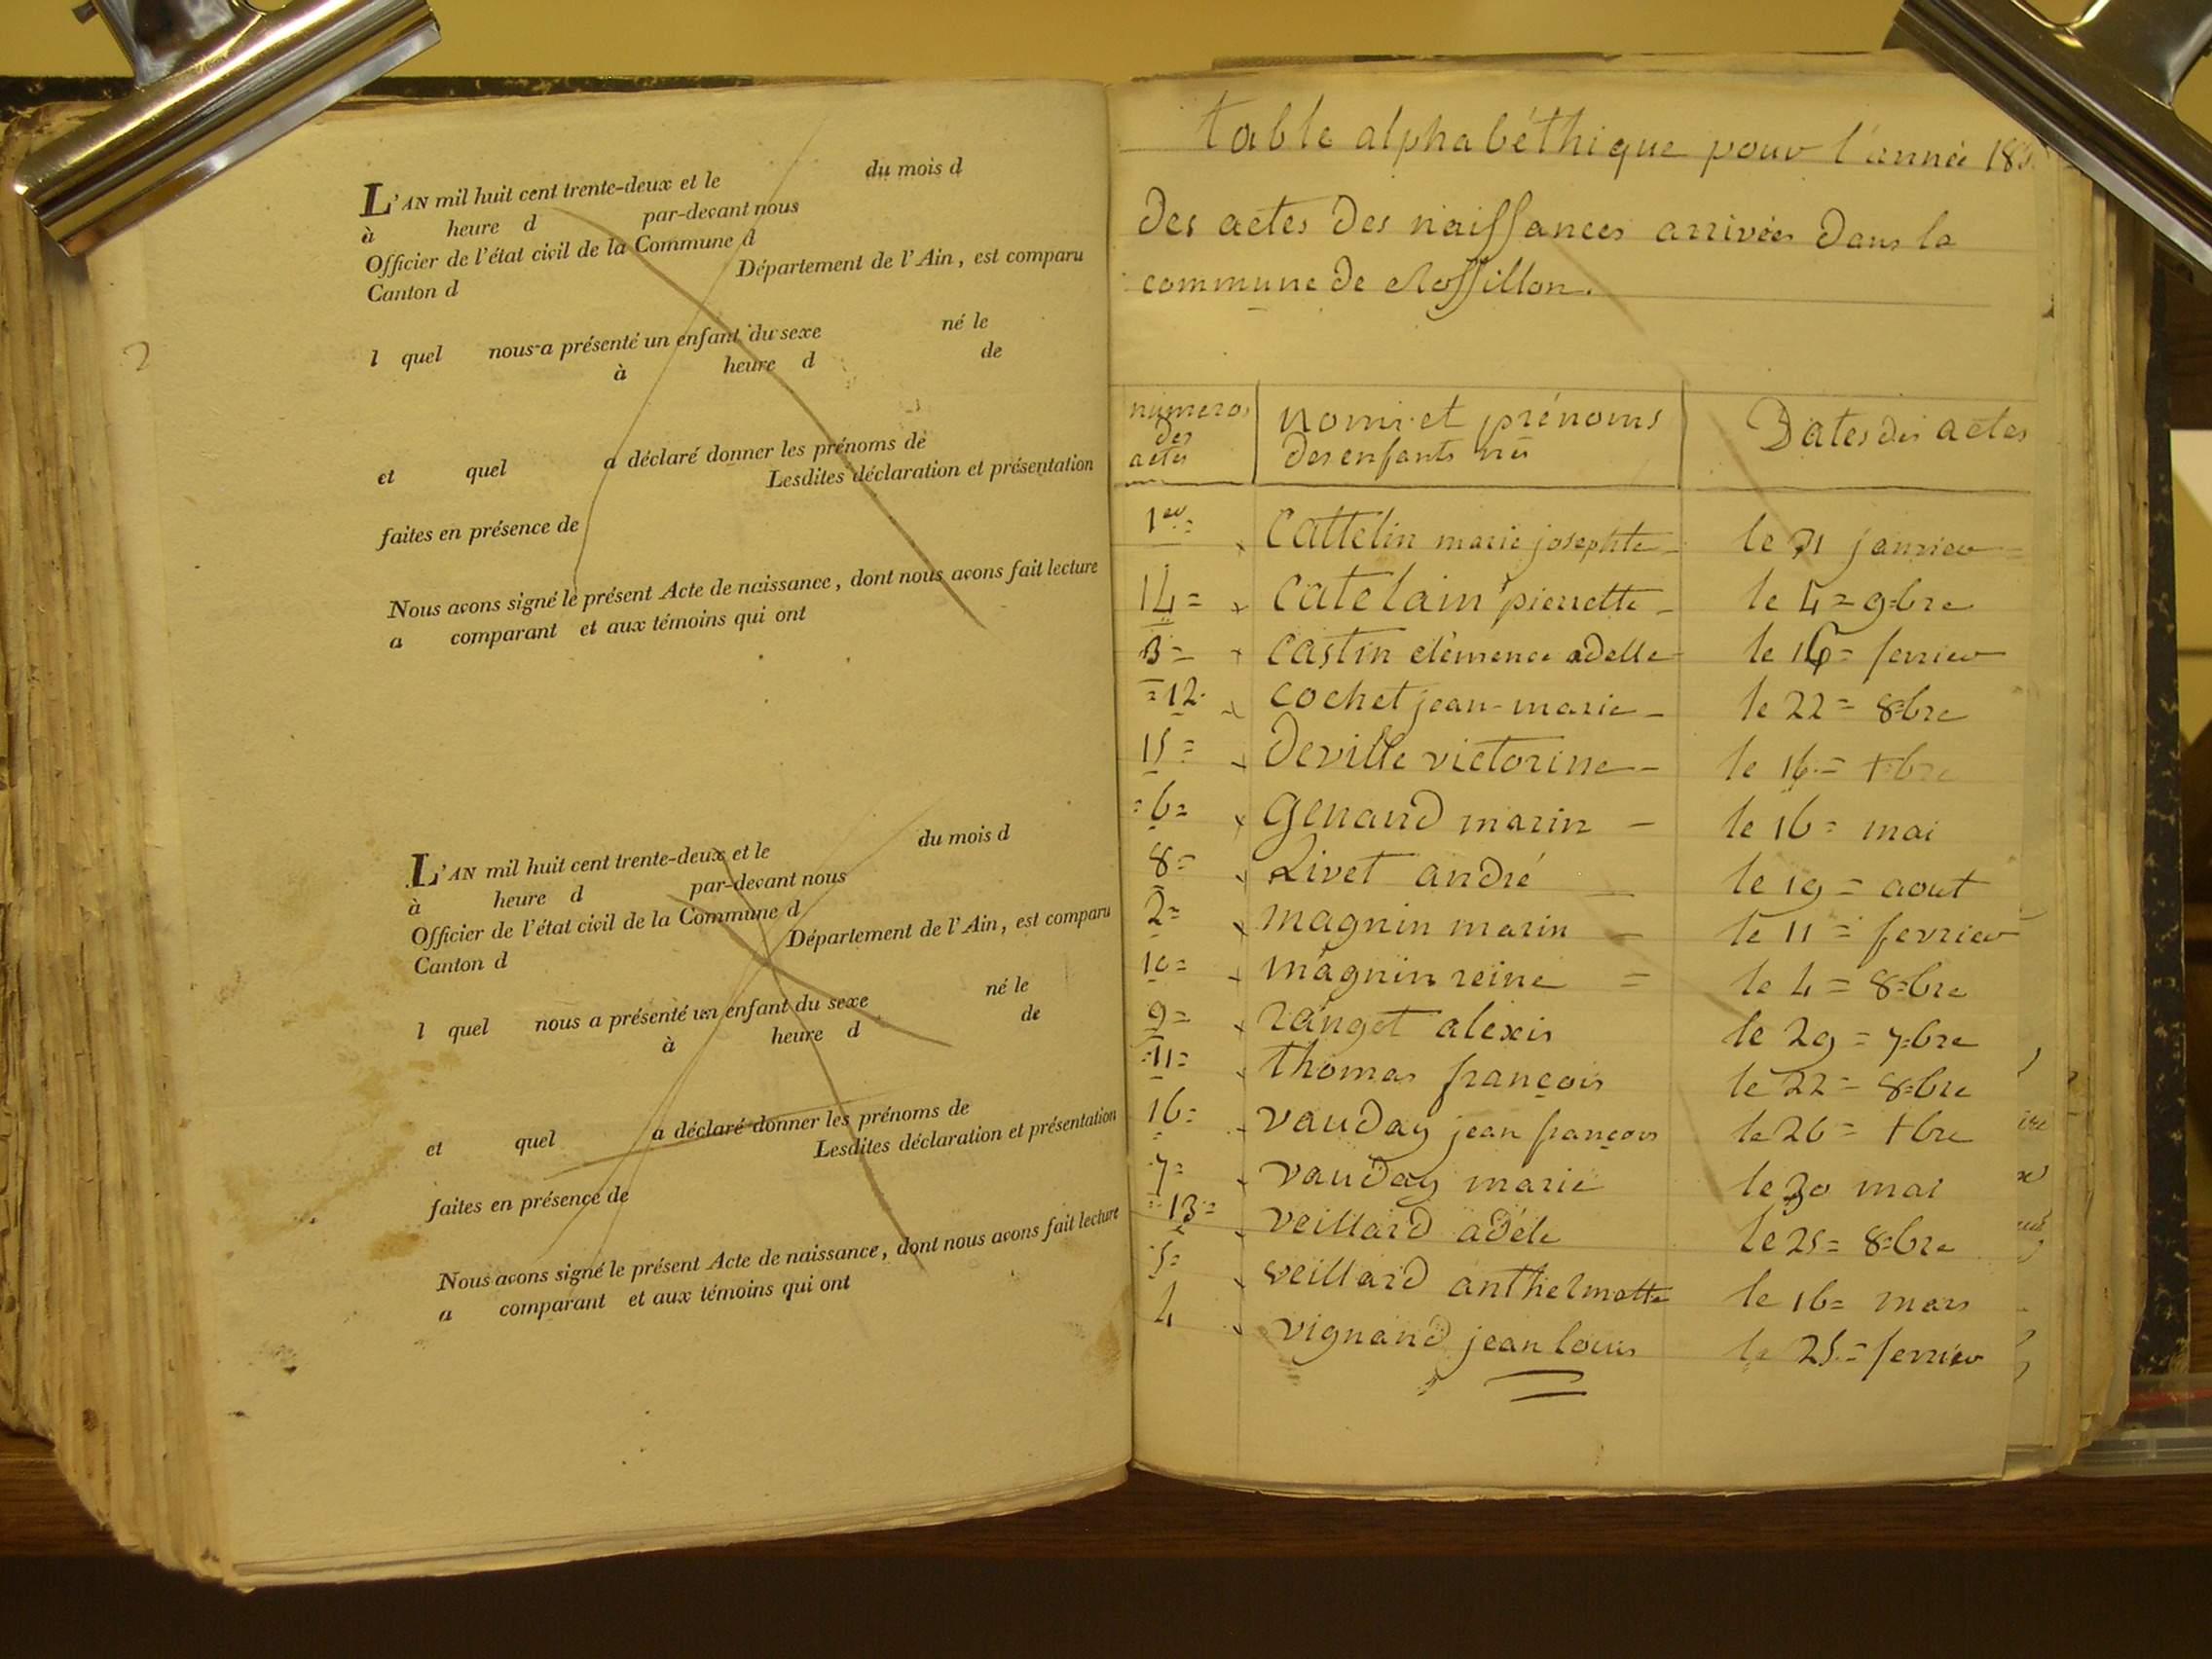 L'AN mil huit cent trente-deux et le du mois d
à heure d par-devant nous
Officier de l'état civil de la Commune d
Canton d Département de l'Ain, est comparu
l quel nous a présenté un enfant du sexe né le
à heure d de
et quel a déclaré donner les prénoms de
Lesdites déclaration et présentation
faites en présence de
Nous avons signé le présent Acte de naissance, dont nous avons fait lecture
a comparant et aux témoins qui ont
L'AN mil huit cent trente-deux et le du mois d
à heure d par-devant nous
Officier de l'état civil de la Commune d
Canton d Département de l'Ain, est comparu
l quel nous a présenté un enfant du sexe né le
à heure d de
et quel a déclaré donner les prénoms de
Lesdites déclaration et présentation
faites en présence de
Nous avons signé le présent Acte de naissance, dont nous avons fait lecture
a comparant et aux témoins qui ont
table alphabéthique pour l'année
des actes des naissances arrivées dans la
commune de Rossillon.
numeros des actes | noms et prénoms des enfants nés | Dates des actes
1er = Cattelin marie josephte - le 21 janvier =
14 = catelain pierrette - le 4 = 9=bre
3 = castin clémence adelle - le 16 = fevrier
= 12 cochet jean-marie - le 22 = 8=bre
15 = Deville victorine - le 16 = +bre
= 6 = genand marin - le 16 = mai
8 = Livet andré - le 19 = aout
2 = magnin marin - le 11 = fevrier
10 = magnin reine = le 4 = 8=bre
9 = ranget alexis le 29 = 7=bre
= 11 = thomas françois le 22 = 8=bre
16 = vauday jean françois le 26 = +bre
7 = vauday marie le 30 mai
= 13 = veillard adéle le 25 = 8=bre
5 = veillard anthelmette le 16 = mars
4 vignand jean louis le 25 = fevrier